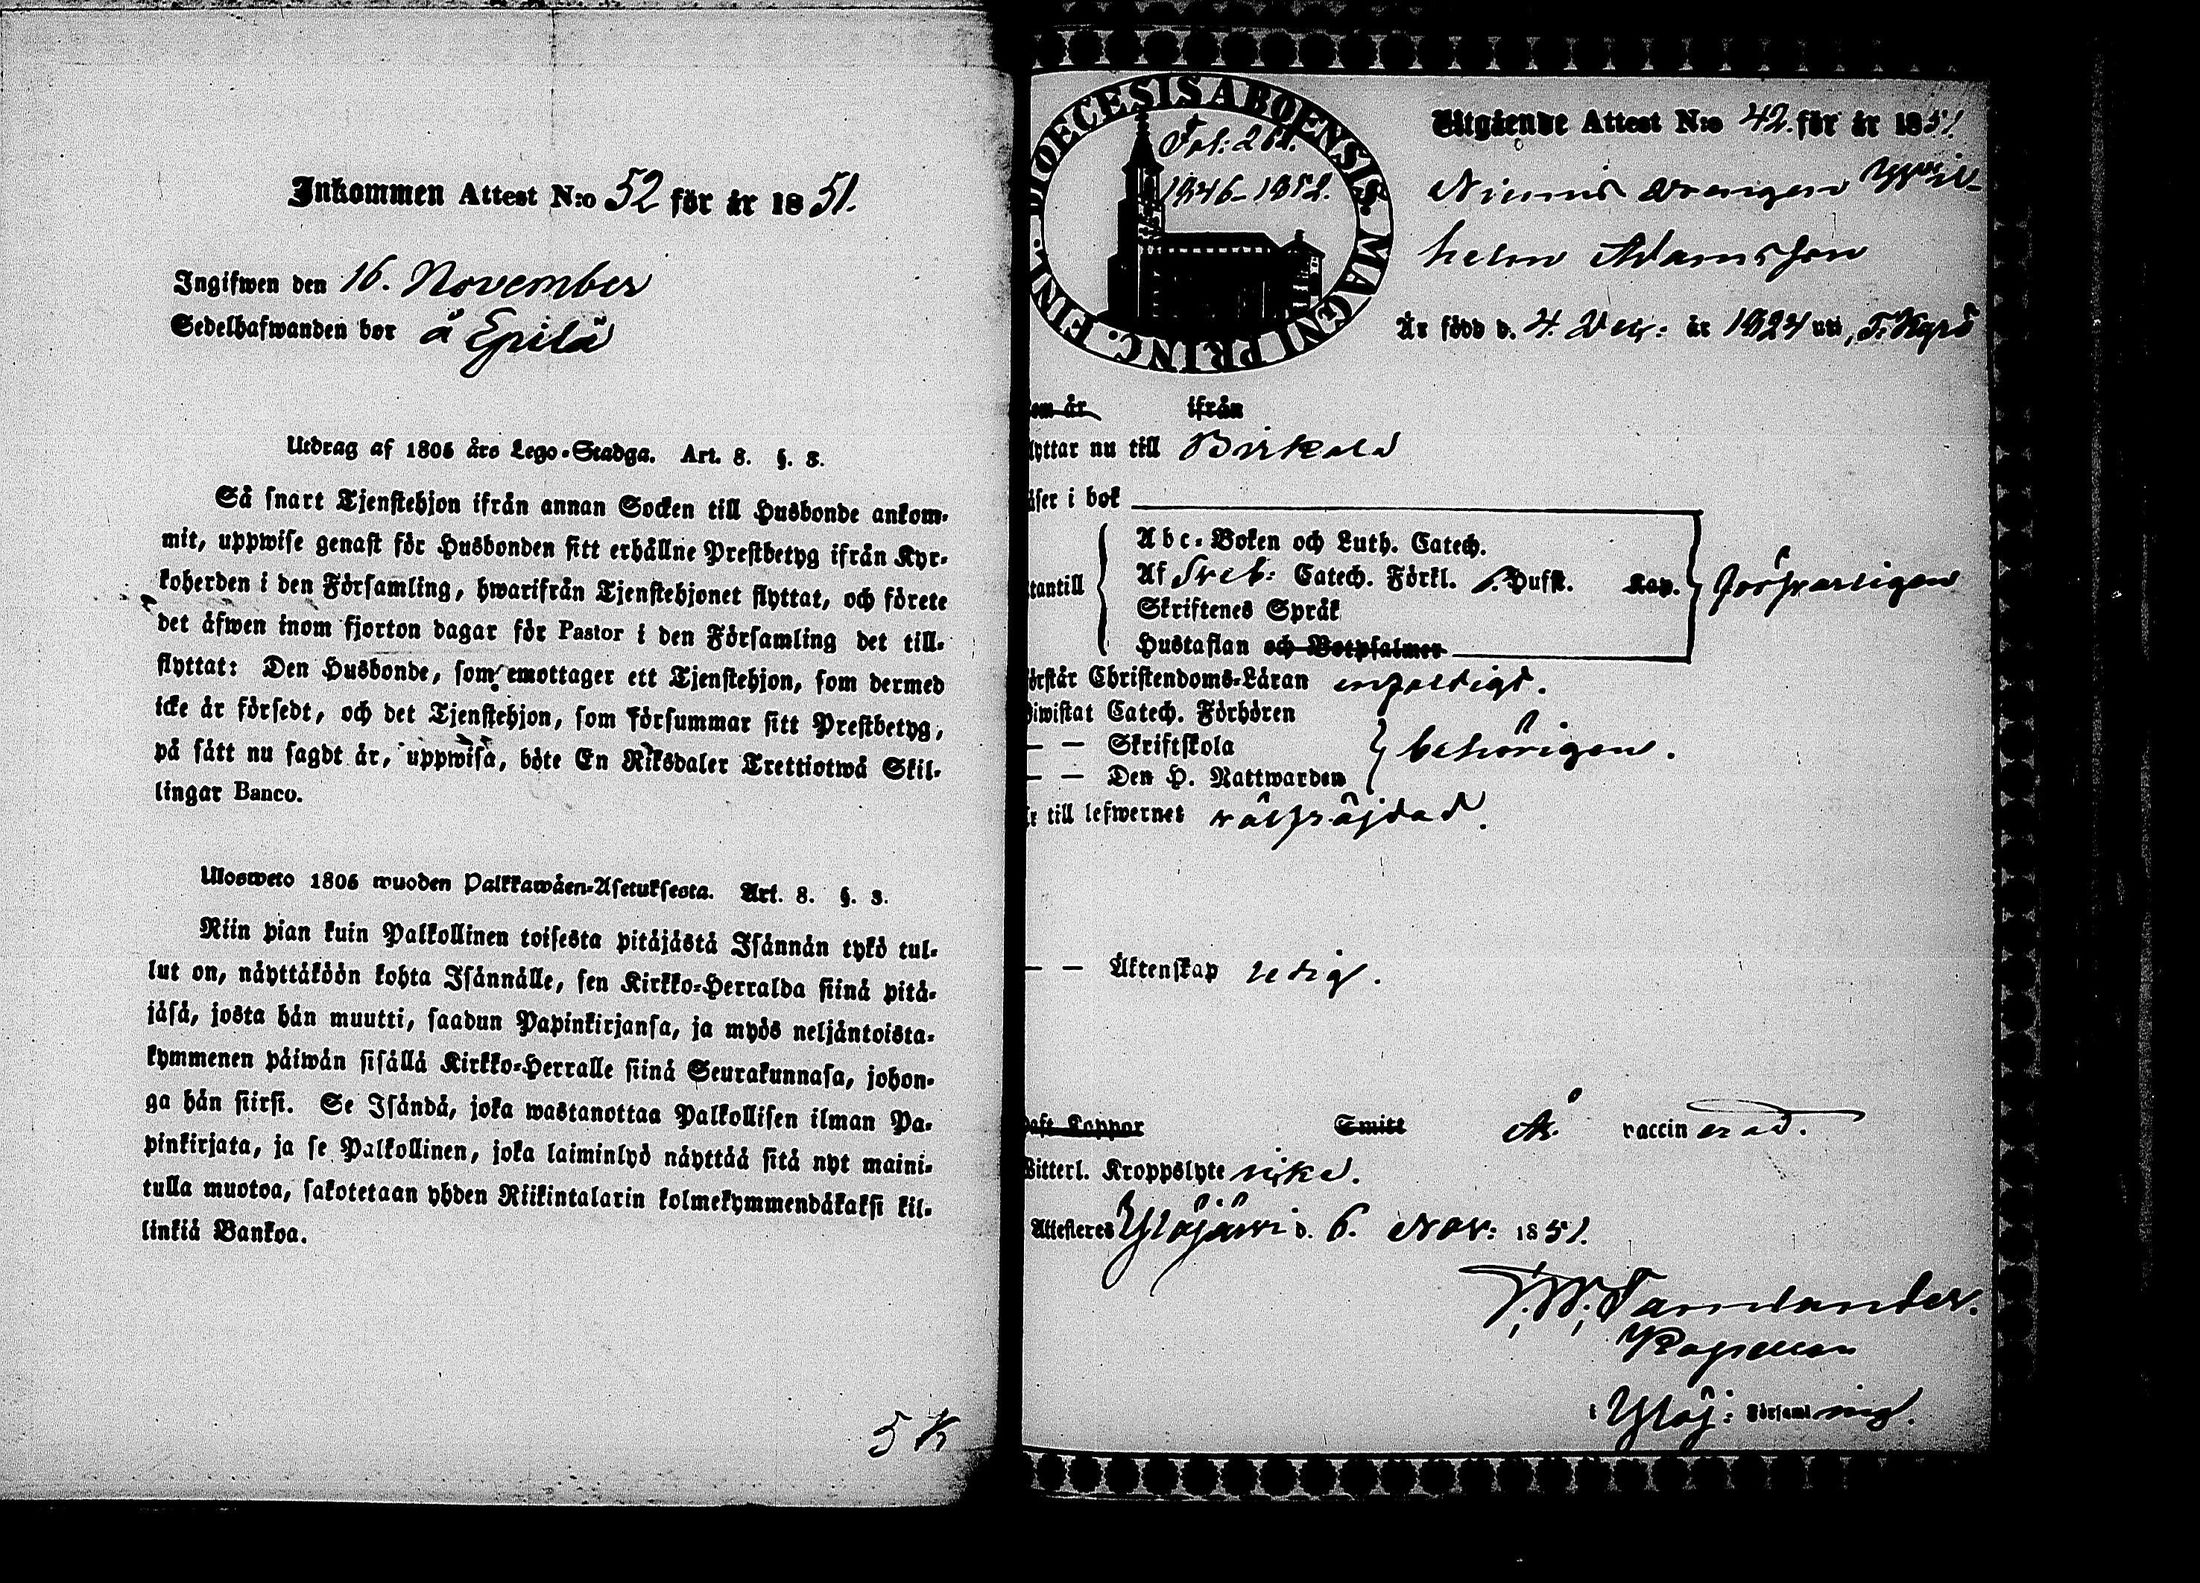 Inkommen Attest N:o 52 för år 1851.
Ingifwen den 16. November
Sedelhafwanden bor å Epilä
Utdrag af 1805 års Lego-Stadga. Art. 8. §. 3.
Så snart Tjenstehjon ifrån annan Socken till Husbonde ankom-
mit, uppwise genast för Husbonden sitt erhållne Prestbetyg ifrån Kyr-
koherden i den Församling, hwarifrån Tjenstehjonet flyttat, och förete
det äfwen inom fjorton dagar för Pastor i den Församling det till-
flyttat: Den Husbonde, som emottager ett Tjenstehjon, som dermed
icke är försedt, och det Tjenstehjon, som försummar sitt Prestbetyg,
på sätt nu sagdt är, uppwisa, böte En Riksdaler Trettiotwå Skil-
lingar Banco.
Ulosweto 1805 wuoden Palkkawäen-Asetuksesta. Art. 8. §. 3.
Niin pian kuin Palkollinen toisesta pitäjästä Isännän tykö tul-
lut on, näyttäköön kohta Isännälle, sen Kirkko-Herralda siinä pitä-
jäsä, josta hän muutti, saadun Papinkirjansa, ja myös neljäntoista-
kymmenen päiwän sisällä Kirkko-Herralle siinä Seurakunnasa, johon-
ga hän siirsi. Se Isändä, joka wastanottaa Palkollisen ilman Pa-
pinkirjata, ja se Palkollinen, joka laiminlyö näyttää sitä nyt maini-
tulla muotoa, sakotetaan yhden Riikintalarin kolmekymmendäkaksi kil-
linkiä Bankoa.
5 K
DIOECESIS ABOENSIS. MAGNI PRINC. FINL.
Fol: 261.
1846-1852.
Utgående Attest N:o 42. för år 1851.
drängen Wil-
helm Adamsson
Är född d. 4. Dec: år 1824 uti T. Kyrö
om är ifrån
lyttar nu till Birkala
äser i bok
tantill
Abc-Boken och Luth. Catech.
Af Sveb: Catech. Förkl. s. Husst. Kap.
Skriftenes Språk
Hustaflan och Botpsalmer
försvarligen
örstår Christendoms-Läran enfaldigt.
iwistat Catech. Förhören
— — Skriftskola
— — Den H. Nattwarden
behörigen.
r till lefwernet välfräjdad.
— — Äktenskap ledig.
aft Koppor Smitt Är vaccinerad.
itterl. Kroppslyte icke.
Attesteres Ylöjärvi d. 6. Nov: 1851.
Kapellan
i Ylöj: Församling.